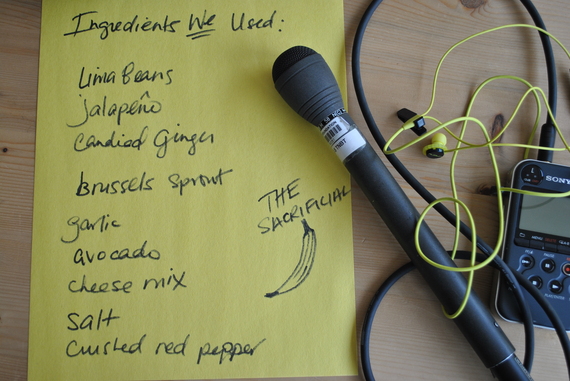 Ingredients We Used:
Lima Beans
jalapeño
Candied Ginger
brussels sprout
garlic
avocado
cheese mix
salt
crushed red pepper
THE
SACRIFICIAL
SONY